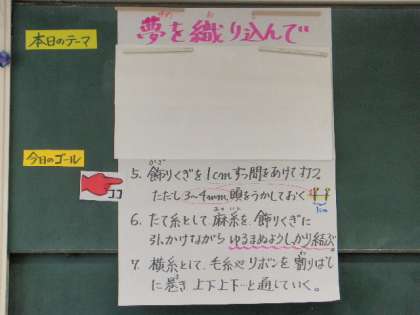 本日のテーマ
夢を織り込んで
今日のゴール
ココ
5. 飾りくぎを1cmずつ間をあけて打つ。
ただし3〜4mm、頭をうかしておく
1cm
6. たて糸として麻糸を、飾りくぎに
引っかけながらゆるまぬようしっかり結ぶ。
7. 横糸として、毛糸やリボンを割りばし
に巻き上下上下…と通していく。